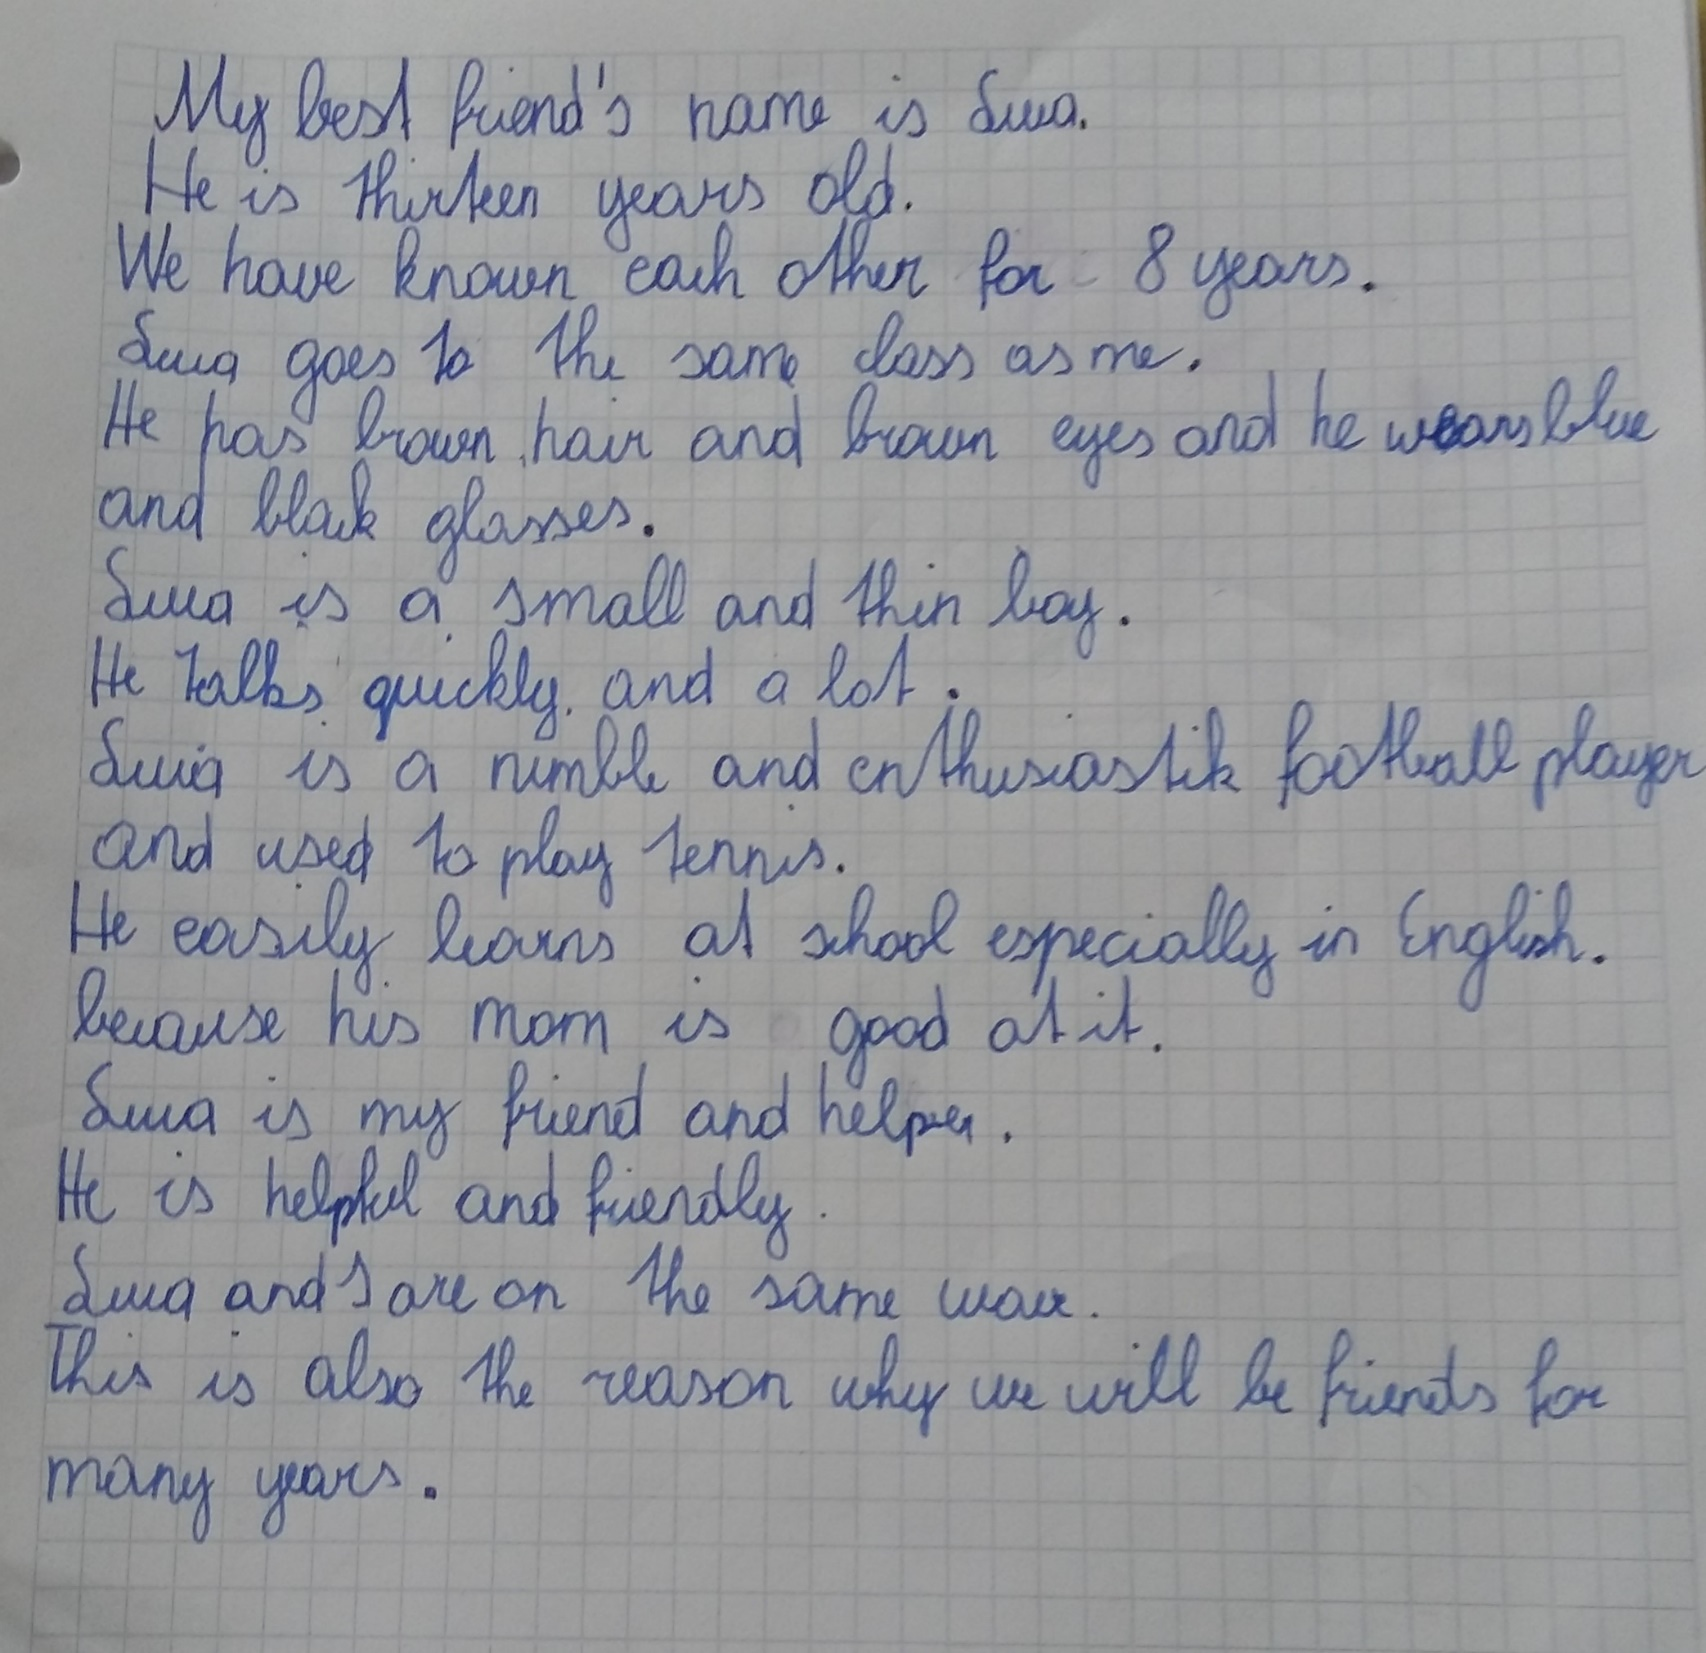 My best friend's name is
He is thirteen years old.
We have known each other for 8 years.
goes to the same class as me.
He has brown hair and brown eyes and he wears blue
and black glasses.
is a small and thin boy.
He talks quickly and a lot.
is a nimble and enthusiastik football player
and used to play tennis.
He easily learns at school especially in English.
because his mom is good at it.
is my friend and helper.
He is helpful and friendly.
and I are on the same wave.
This is also the reason why we will be friends for
many years.